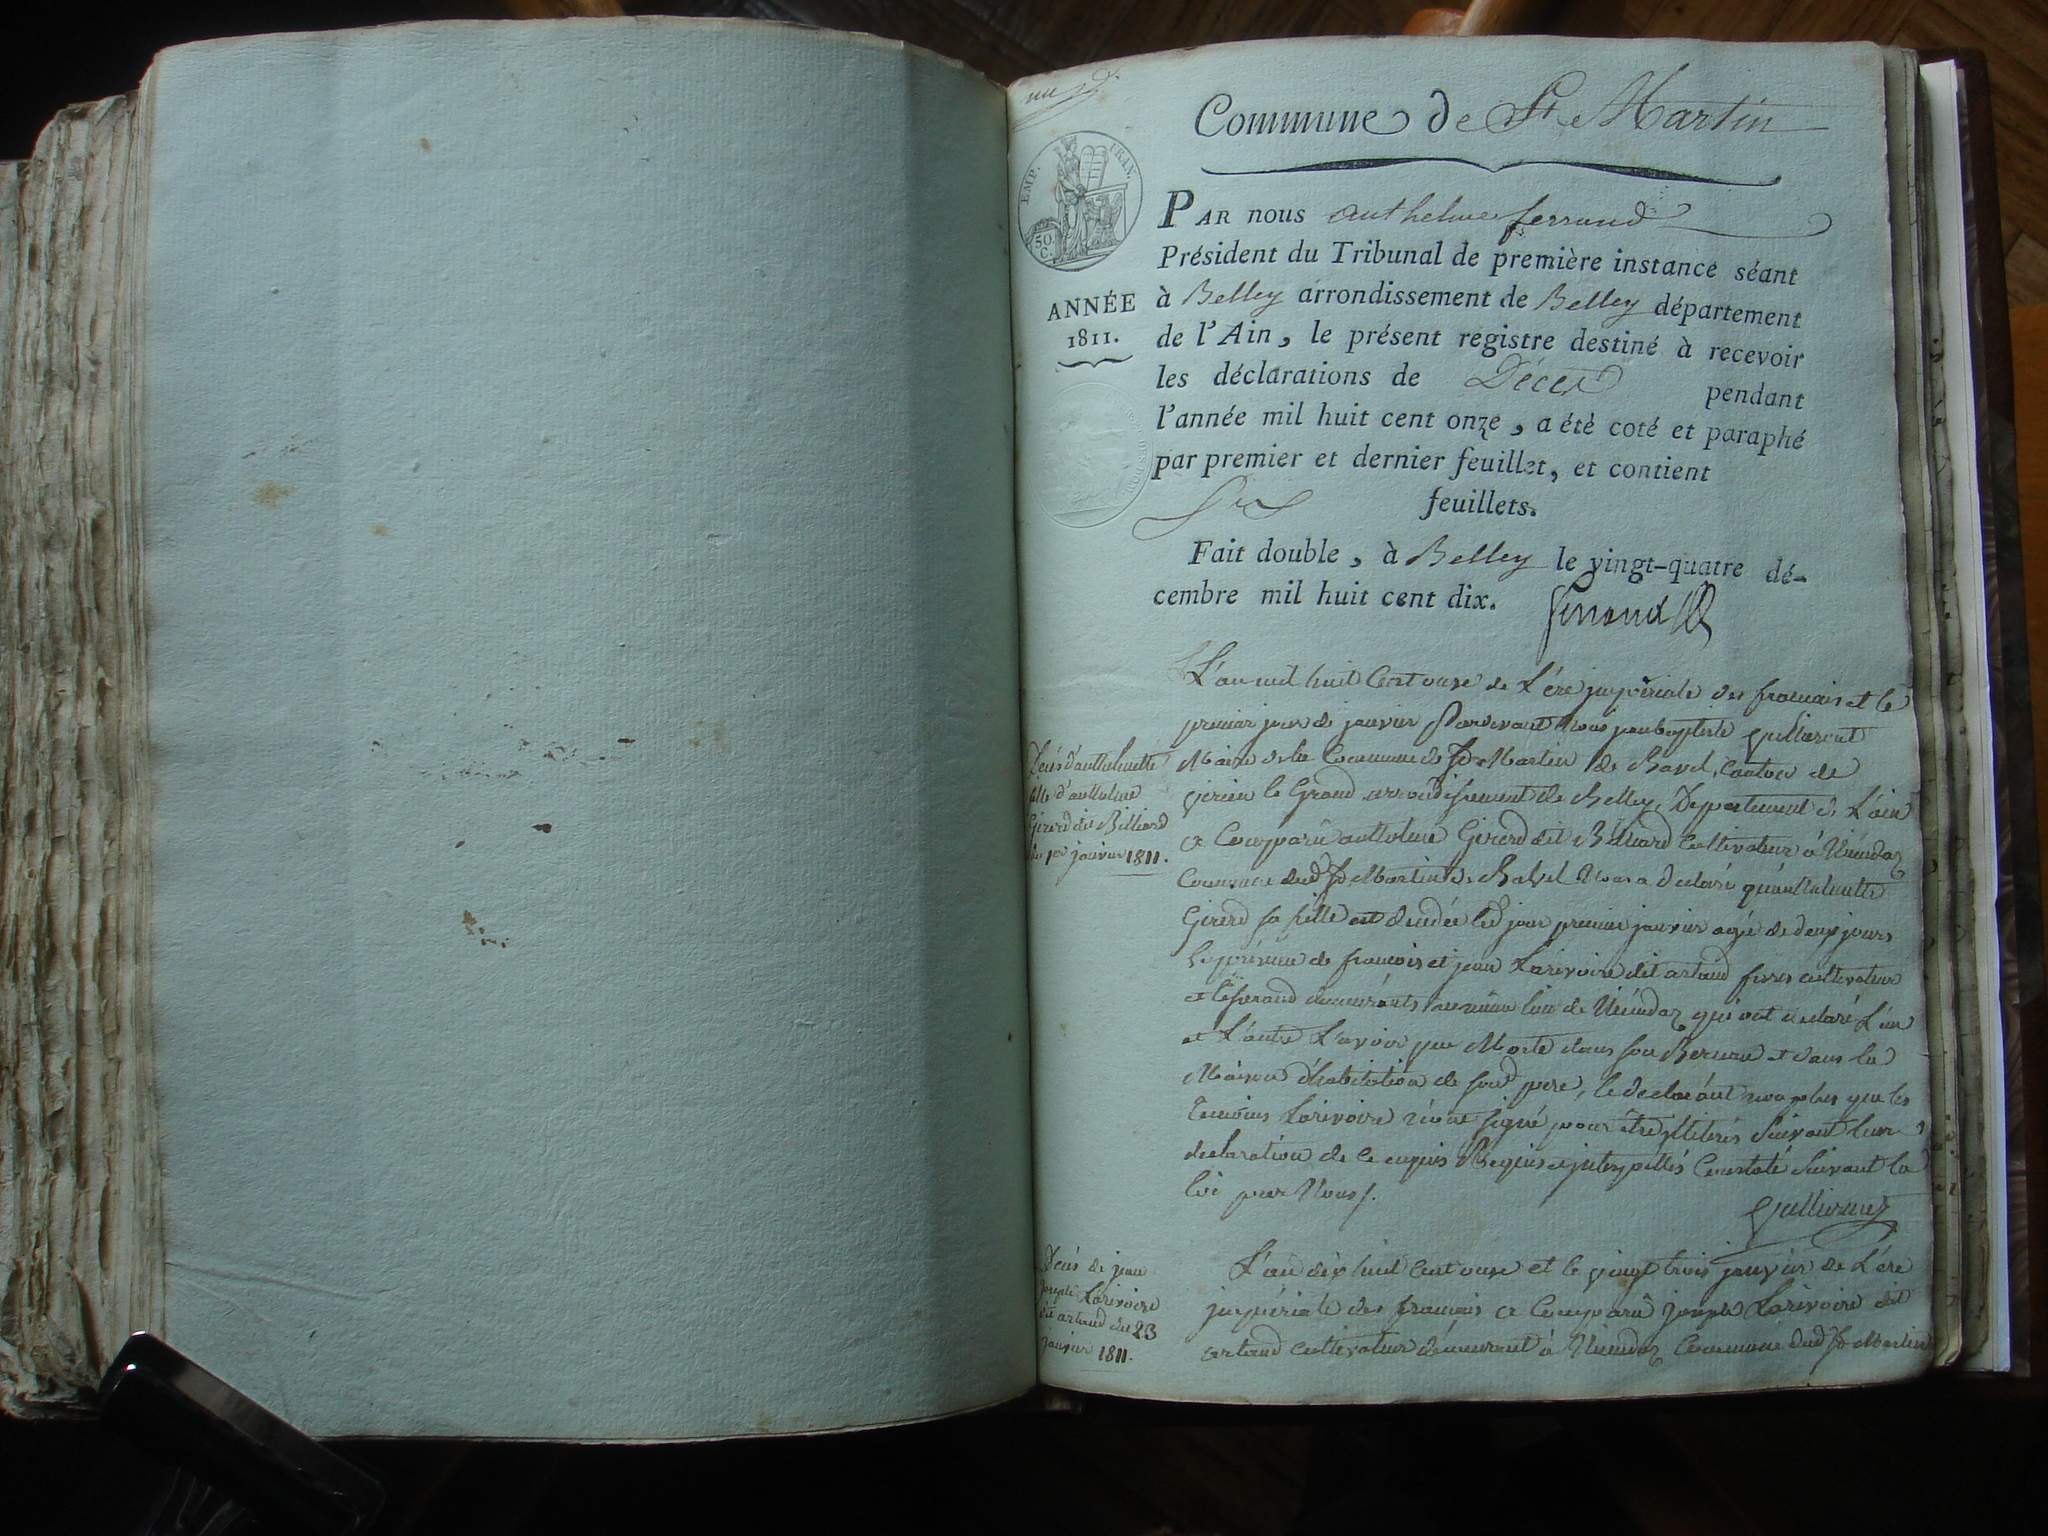 un
Commune de St Martin
EMP. FRAN.
50 C.
ANNÉE
1811.
PAR nous anthelme ferrand
Président du Tribunal de première instance séant
à Belley arrondissement de Belley département
de l'Ain, le présent registre destiné à recevoir
les déclarations de Décès pendant
l'année mil huit cent onze, a été coté et paraphé
par premier et dernier feuillet, et contient
six feuillets.
Fait double, à Belley le vingt-quatre dé-
cembre mil huit cent dix. ferrand
Décès d'anthelmette
fille d'anthelme
Girerd dit Billiard
du 1er janvier 1811.
L'an mil huit Cent onze de L'ére jmpériale des francais et le
premier jour de janvier Pardevant Nous jean baptiste guillierant
Maire de la Commune de St Martin de Bavel, Canton de
virieu le Grand arrondissement de Belley, Département de L'ain
a Comparû anthelme Girerd dit Billiard Cultivateur à
Commune dud St Martin de Bavel Nous a déclaré qu'anthelmette
Girerd sa fille est décédée led jour premier janvier agée de deux jours
En présence de francois et jean Larivoire dit artaud freres cultivateur
et demeurants au même lieu de qui ont declaré L'un
et L'autre L'avoir vue Morte dans son Berceau et dans la
Maison d'habitation de sond pere, le declarant non plus que les
temoins Larivoire n'ont signé pour être jlliterés Suivant leur
declaration de ce enquis Requis et jnterpellés Constaté Suivant la
loi par Nous /.
Décès de jean
joseph Larivoire
dit artaud du 23
janvier 1811.
L'an dix huit Cent onze et le vingt trois janvier de L'ére
jmpériale des francais a Comparû joseph Larivoire dit
artaud cultivateur demeurant à Commune dud St Martin